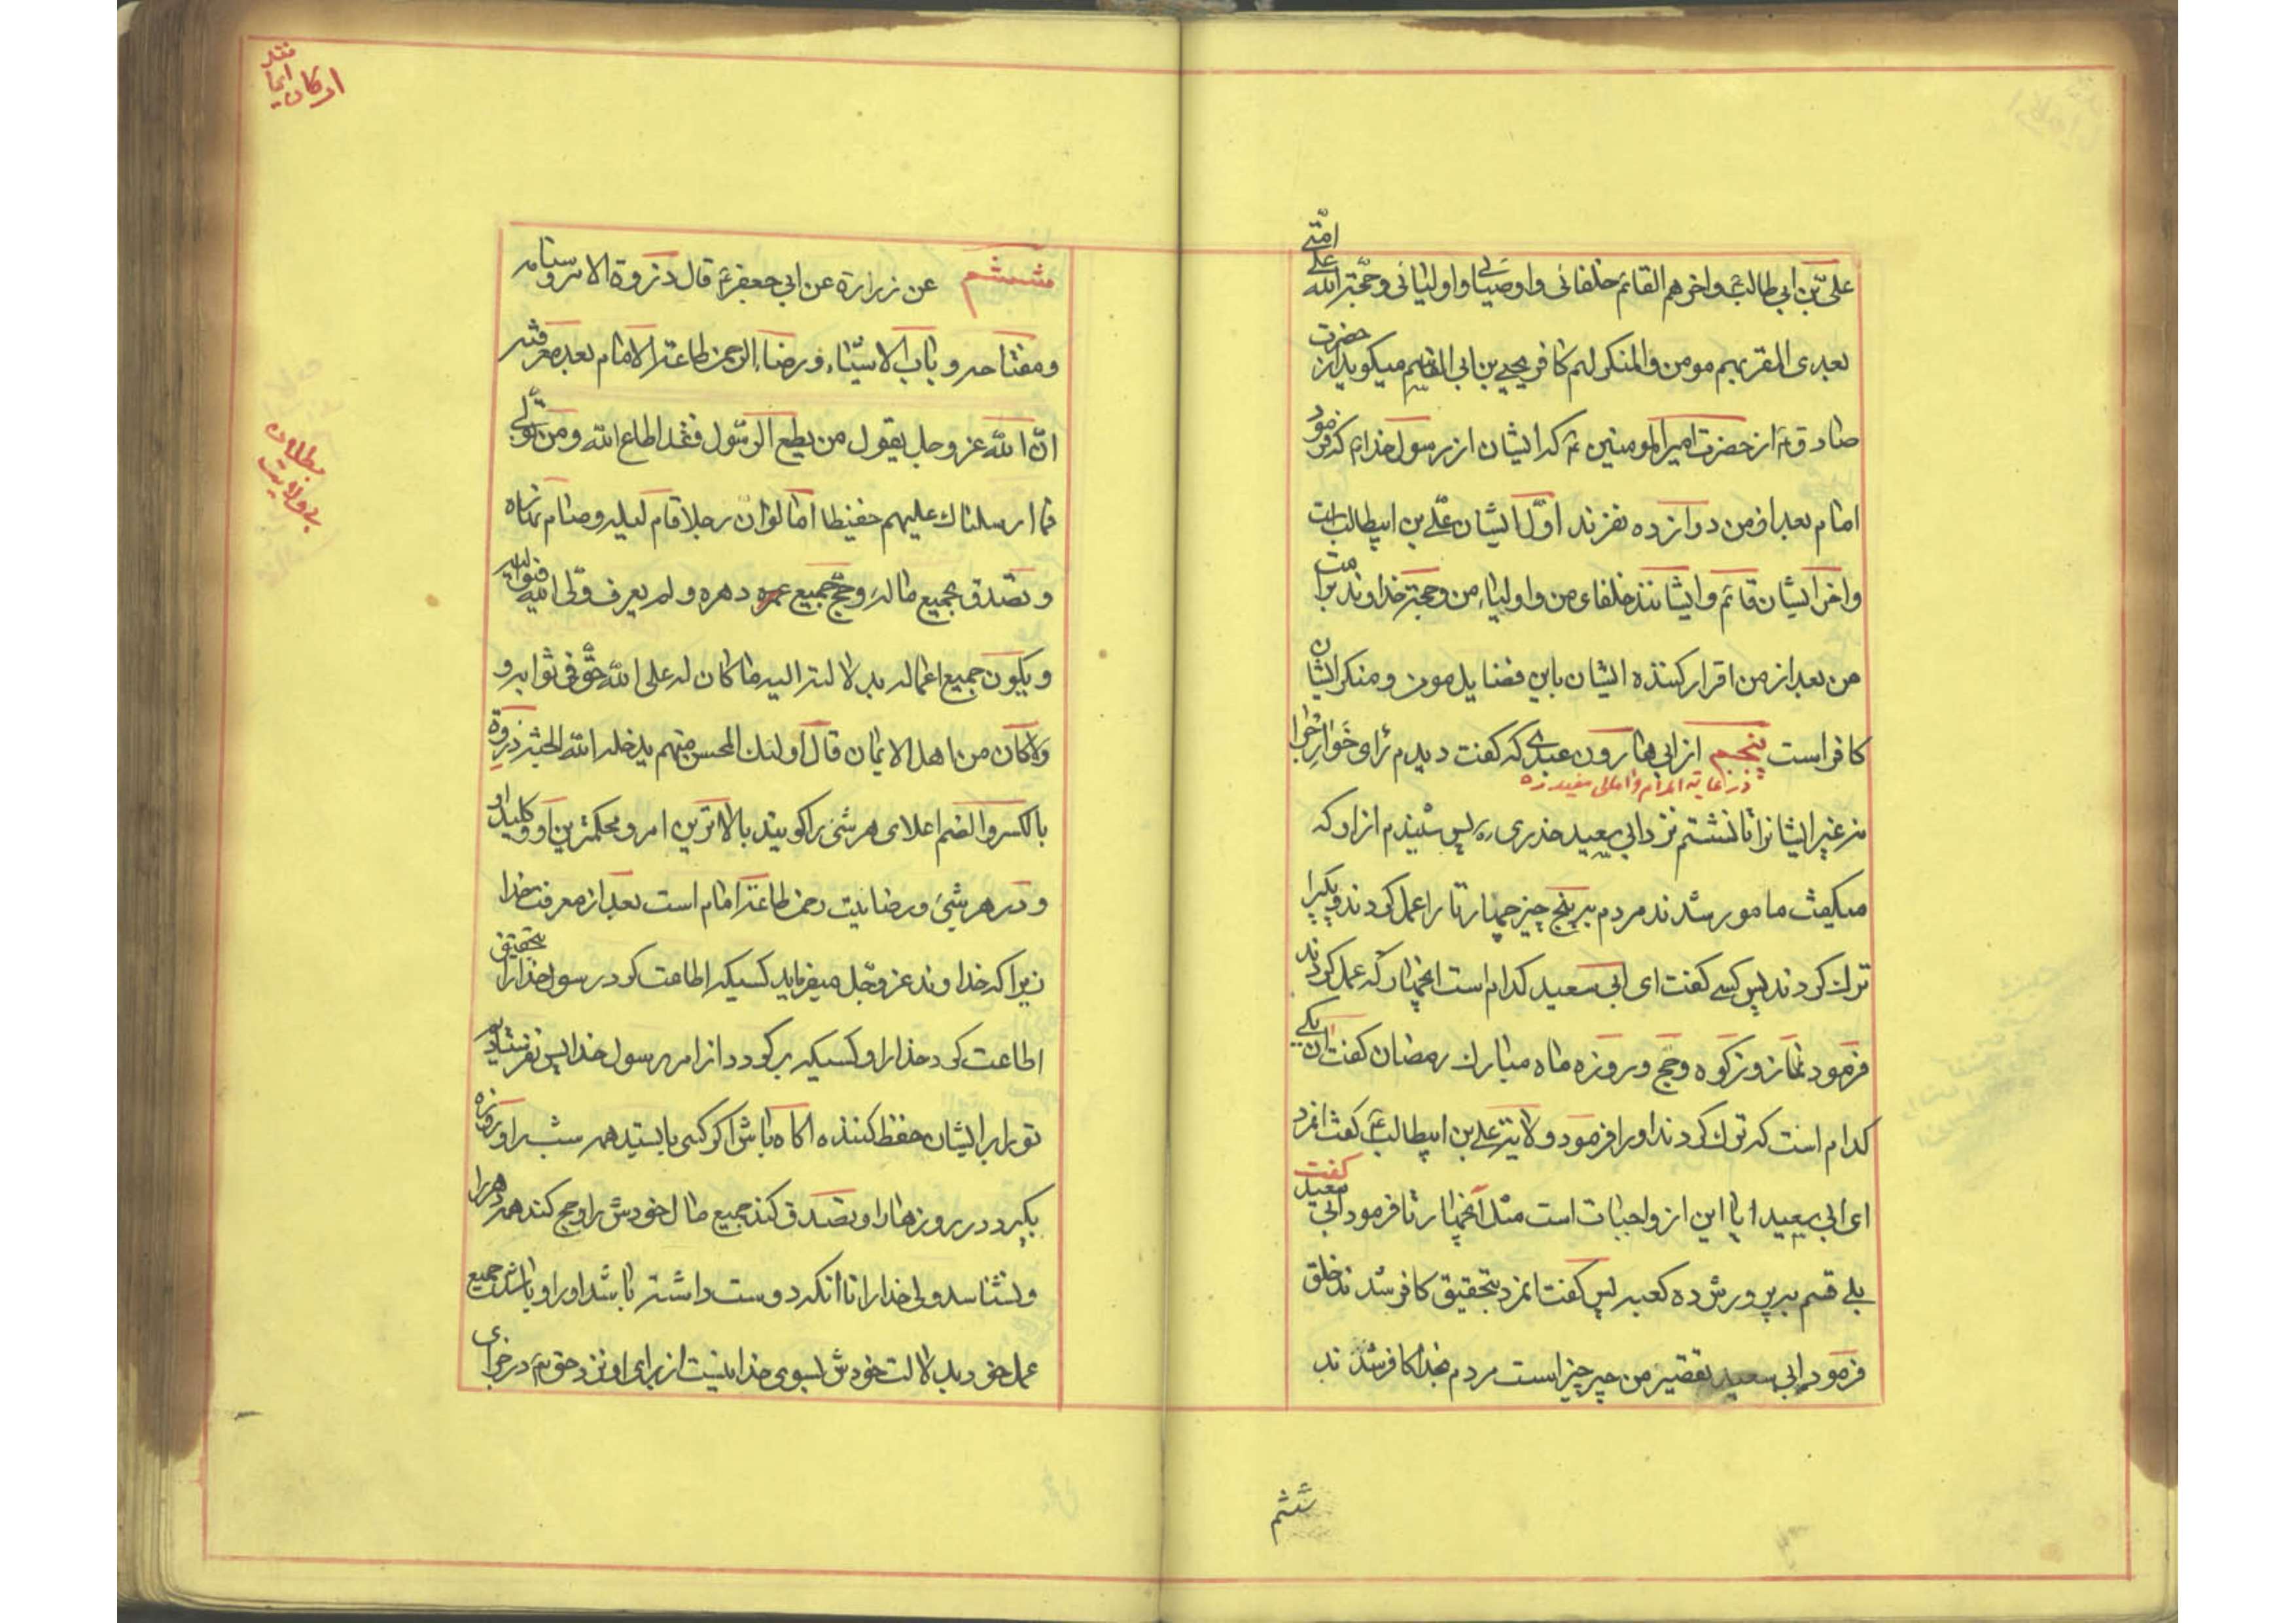 علی بن ابی طالب ع و اخرهم القائم خلفائی و اوصیائی و اولیائی و حجة الله علی امتی
بعدی المقر بهم مومن و المنکر لهم کافر یحیی بن ابی القاسم میکوید از حضرت
صادق ع از حضرت امیر المومنین ع که ایشان از رسول خدا ص که فرمود
امام بعد از من دوازده نفرند اول ایشان علی بن ابیطالب است
و اخر ایشان قائم و ایشانند خلفای من و اولیاء من و حجة خداوند بر امت
من بعد از من اقرار کننده ایشان باین فضایل مومن و منکر ایشان
کافر است پنجم از ابی هارون عبدی که گفت دیدم رای خوارج را
در غایة المرام و امالی مفید ره
نه غیر ایشانرا تا نشستم نزد ابی سعید خدری ره پس شنیدم از او که
میکفت مامور شدند مردم به پنج چیز چهار تا را عمل کردند و یکی را
ترک کردند پس کسی کفت ای ابی سعید کدام است انچهار که عمل کردند
فرمود نماز و زکوه و حج و روزه ماه مبارک رمضان کفت ان یکی
کدام است که ترک کردند او را فرمود ولایة علی بن ابیطالب ع کفت انمرد
ای ابی سعید ایا این از واجبات است مثل انچهار تا فرمود ابی سعید کفت
بلی قسم به پرورش ده کعبه پس کفت انمرد بتحقیق کافر شدند خلق
فرمود ابی سعید تقصیر من چه چیز است مردم بخدا کافر شدند
ششم
نقد
ارکان ایما
ششم عن زرارة عن ابی جعفر ع قال ذروة الامر و سنامه
و مفتاحه و باب الاشیاء و رضاء الرحمن طاعة الامام بعد معرفته
ان الله عز و جل یقول من یطع الرسول فقد اطاع الله و من تولی
فما ارسلناک علیهم حفیظا اما لو ان رجلا قام لیله و صام نهاره
و تصدق بجمیع ماله و حج جمیع دهره و لم یعرف ولی الله فیوالیه
و یکون جمیع اعماله بدلالته الیه ما کان له علی الله حق فی ثوابه و
لا کان من اهل الایمان قال اولئک المحسن منهم یدخله الله الجنة ذروة
بالکسر و الضم اعلای هر شئ را کویند بالاترین امر و محکمترین او و کلید او
و در هر شئ و رضائیت رحمن طاعة امام است بعد از معرفت خدا
زیرا که خداوند عز و جل میفرماید کسیکه اطاعت کرد رسول خدا را بتحقیق
اطاعت کرد خدا را و کسیکه برکردد از امر رسول خدا پس نفرستادیم
تو را بر ایشان حفظ کننده اکاه باش اکر کسی بایستد همه شب را و روزه
بکیرد در روزها را و تصدق کند جمیع مال خودش را و حج کند همه دهر را
و نشناسد ولی خدا را تا انکه دوست داشته باشد او را و باشد جمیع
عمل خود بدلالت خودش بسوی خدا نیست از برای او نزد حق تع در جزای
بطلان
بی ولایت